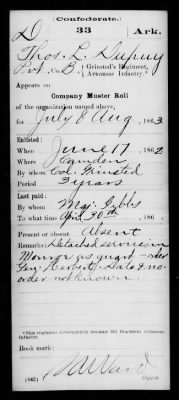 (Confederate.)
D 33 Ark.
Thos. L. Dupuy
Pvt, Co. B, Grinsted's Regiment,
Arkansas Infantry.*
Appears on
Company Muster Roll
of the organization named above,
for July & Aug, 1863
Enlisted:
When June 17, 1862
Where Camden
By whom Col. Grinsted
Period 3 years
Last paid:
By whom Maj. Gibbs
To what time Apr 30th, 186
Present or absent Absent
Remarks: Detached service in
Monroe as guard order
Gen. Herbert. Date & no
order not known.
*This regiment subsequently became 33d Regiment Arkansas
Infantry.
Book mark:
(642)
Copyist.